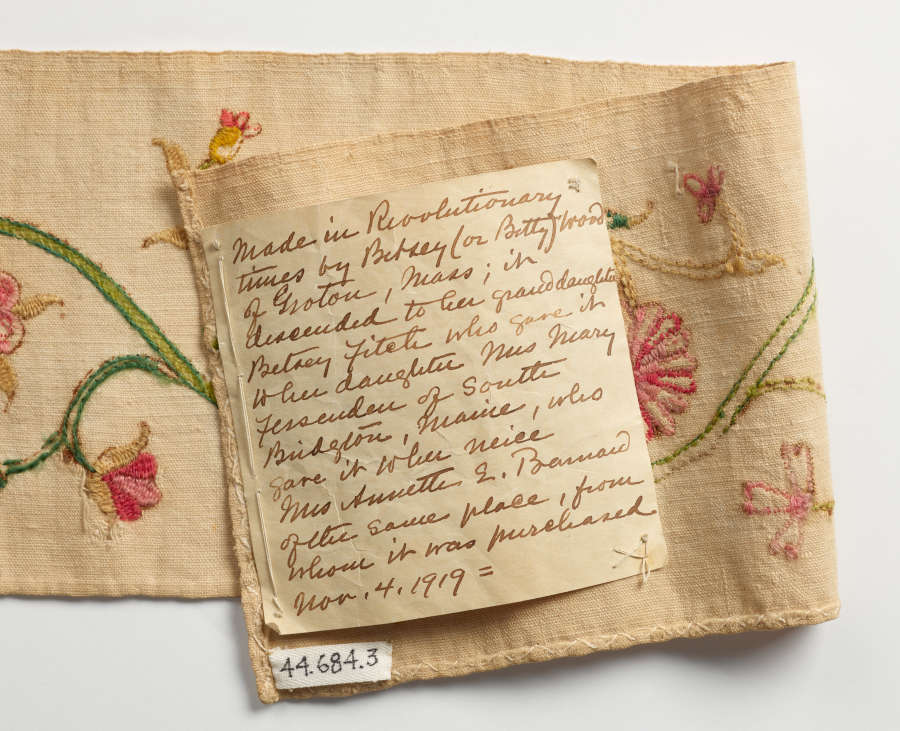 Made in Revolutionary
times by Betsey (or Betty) Wood
of Groton, Mass; it
descended to her granddaughter
Betsey Fitch who gave it
to her daughter Mrs Mary
Fessenden of South
Bridgton, Maine, who
gave it to her neice
Mrs Annette L. Barnard
of the same place, from
whom it was purchased
Nov. 4. 1919 =
44.684.3